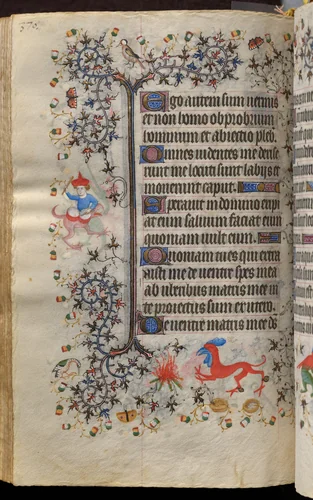 Ego autem sum uermis
et non homo obprobrium
hominum et abiectio pleb
Omnes uidentes me derise
runt me locuti sunt labijs et
mouerunt caput.
Sperauit in domino eripi
at eum saluum faciat eum
quoniam uult eum.
Quoniam tu es qui extra
xisti me de uentre spes mea
ab uberibus matris mee in
te proiectus sum ex utero.
De uentre matris mee ds